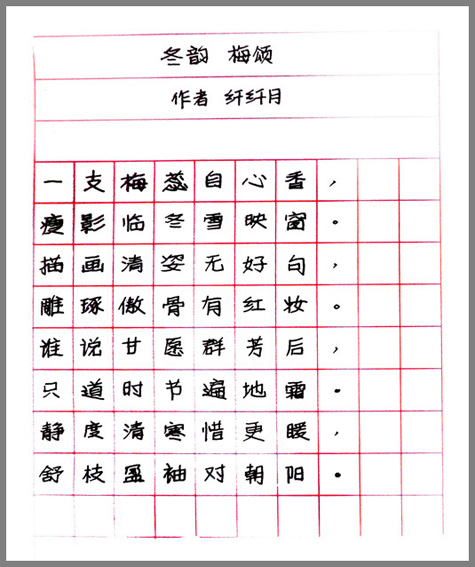 冬韵 梅颂
作者 纤纤月
一支梅蕊自心香，
瘦影临冬雪映窗。
描画清姿无好句，
雕琢傲骨有红妆。
谁说甘愿群芳后，
只道时节遍地霜。
静度清寒惜更暖，
舒枝盈袖对朝阳。